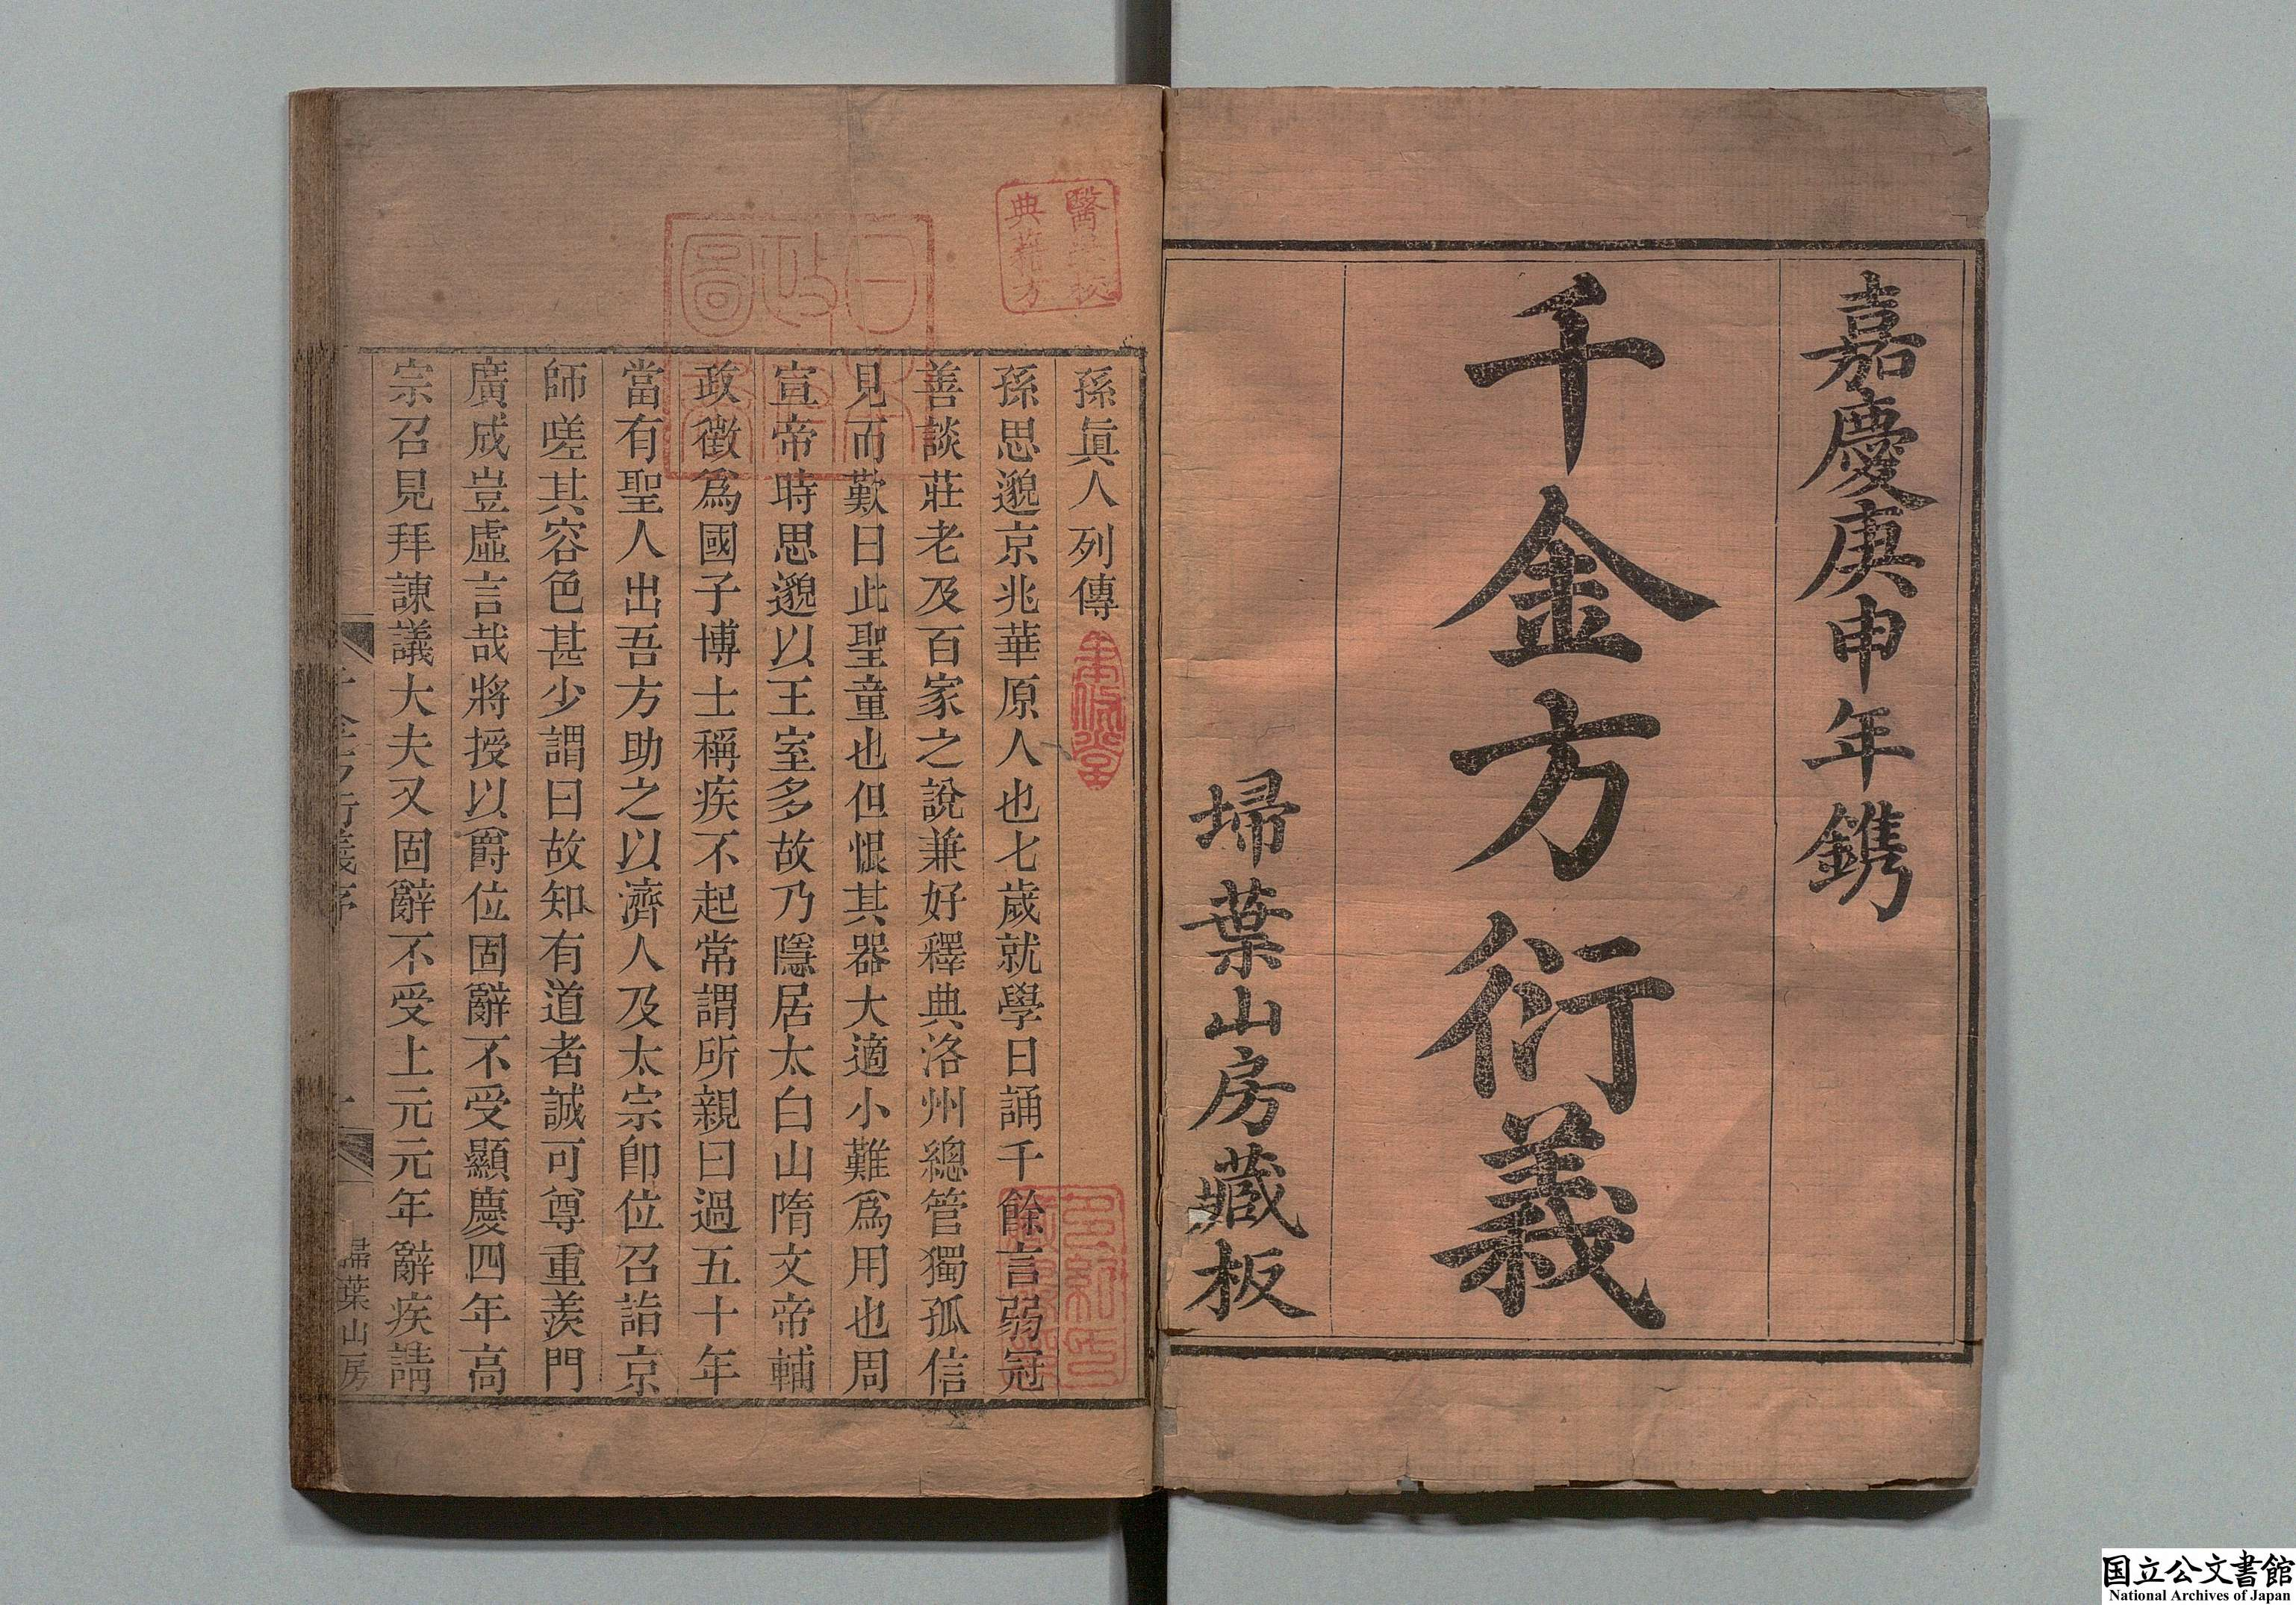 嘉慶庚申年鐫
千金方衍義
埽葉山房藏板
孫眞人列傳
孫思邈京兆華原人也七歲就學日誦千餘言弱冠
善談莊老及百家之說兼好釋典洛州總管獨孤信
見而歎曰此聖童也但恨其器大適小難爲用也周
宣帝時思邈以王室多故乃隱居太白山隋文帝輔
政徵爲國子博士稱疾不起常謂所親曰過五十年
當有聖人出吾方助之以濟人及太宗卽位召詣京
師嗟其容色甚少謂曰故知有道者誠可尊重羨門
廣成豈虛言哉將授以爵位固辭不受顯慶四年高
宗召見拜諫議大夫又固辭不受上元元年辭疾請
千金方衍義序
埽葉山房
醫學校
典藉方
日本
政府
圖書
国立公文書館
National Archives of Japan